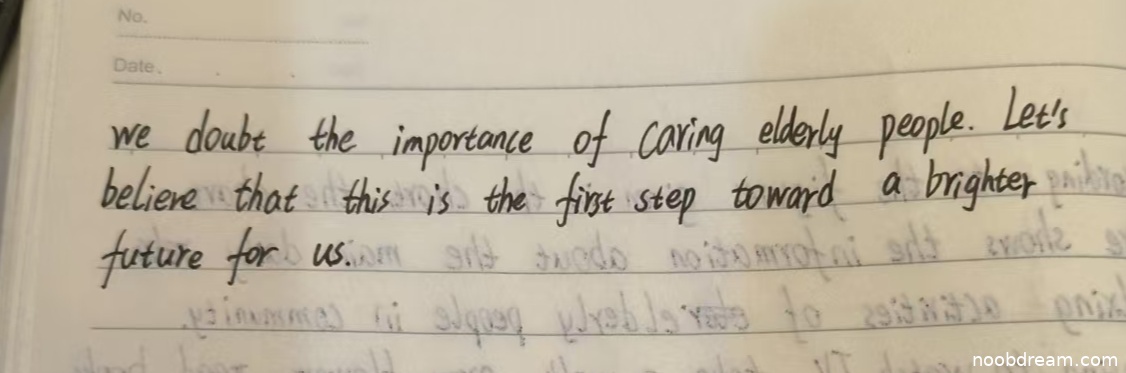 No.
Date.
we doubt the importance of caring elderly people. Let's
believe that this is the first step toward a brighter
future for us.
noobdream.com